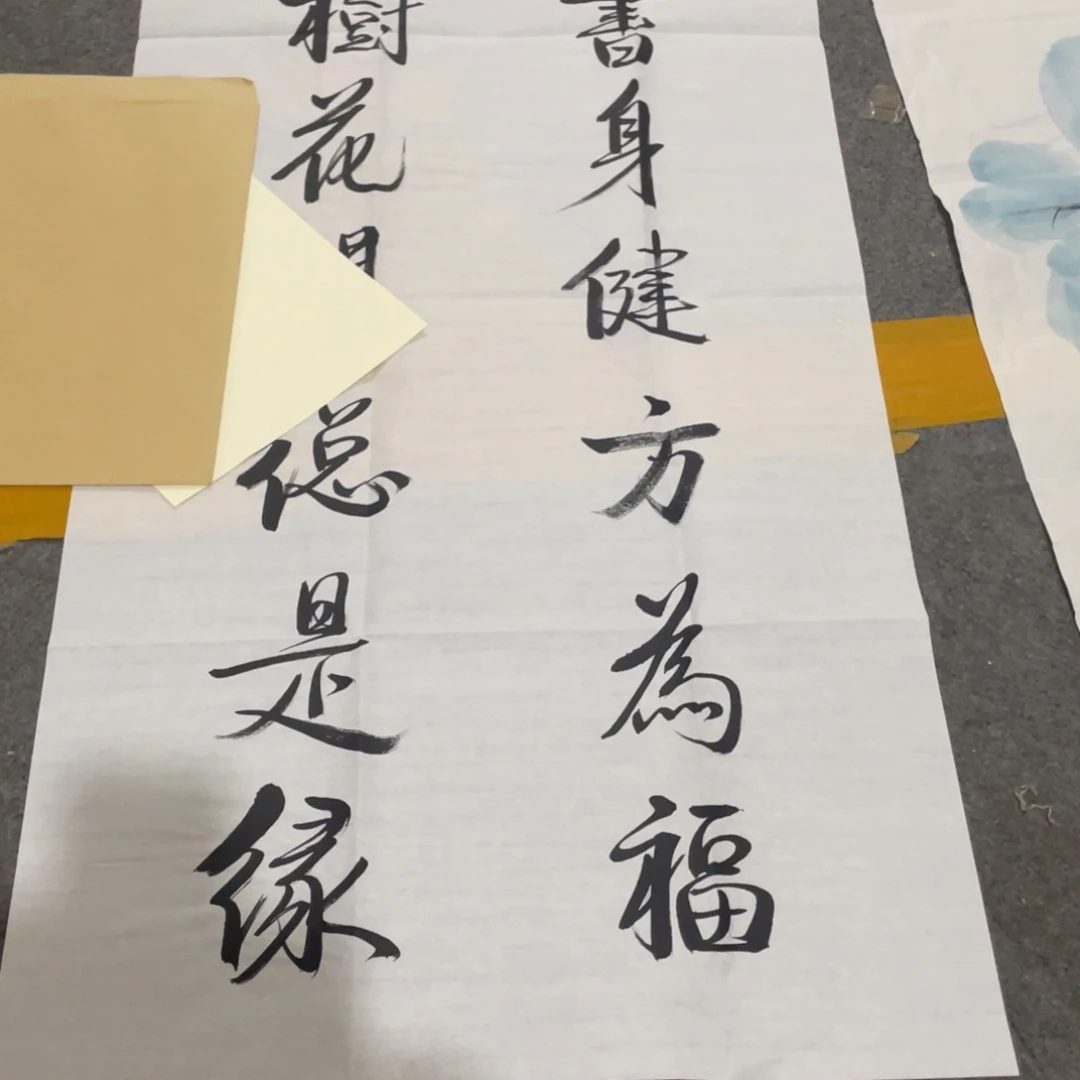 書身健方為福
樹花總是緣